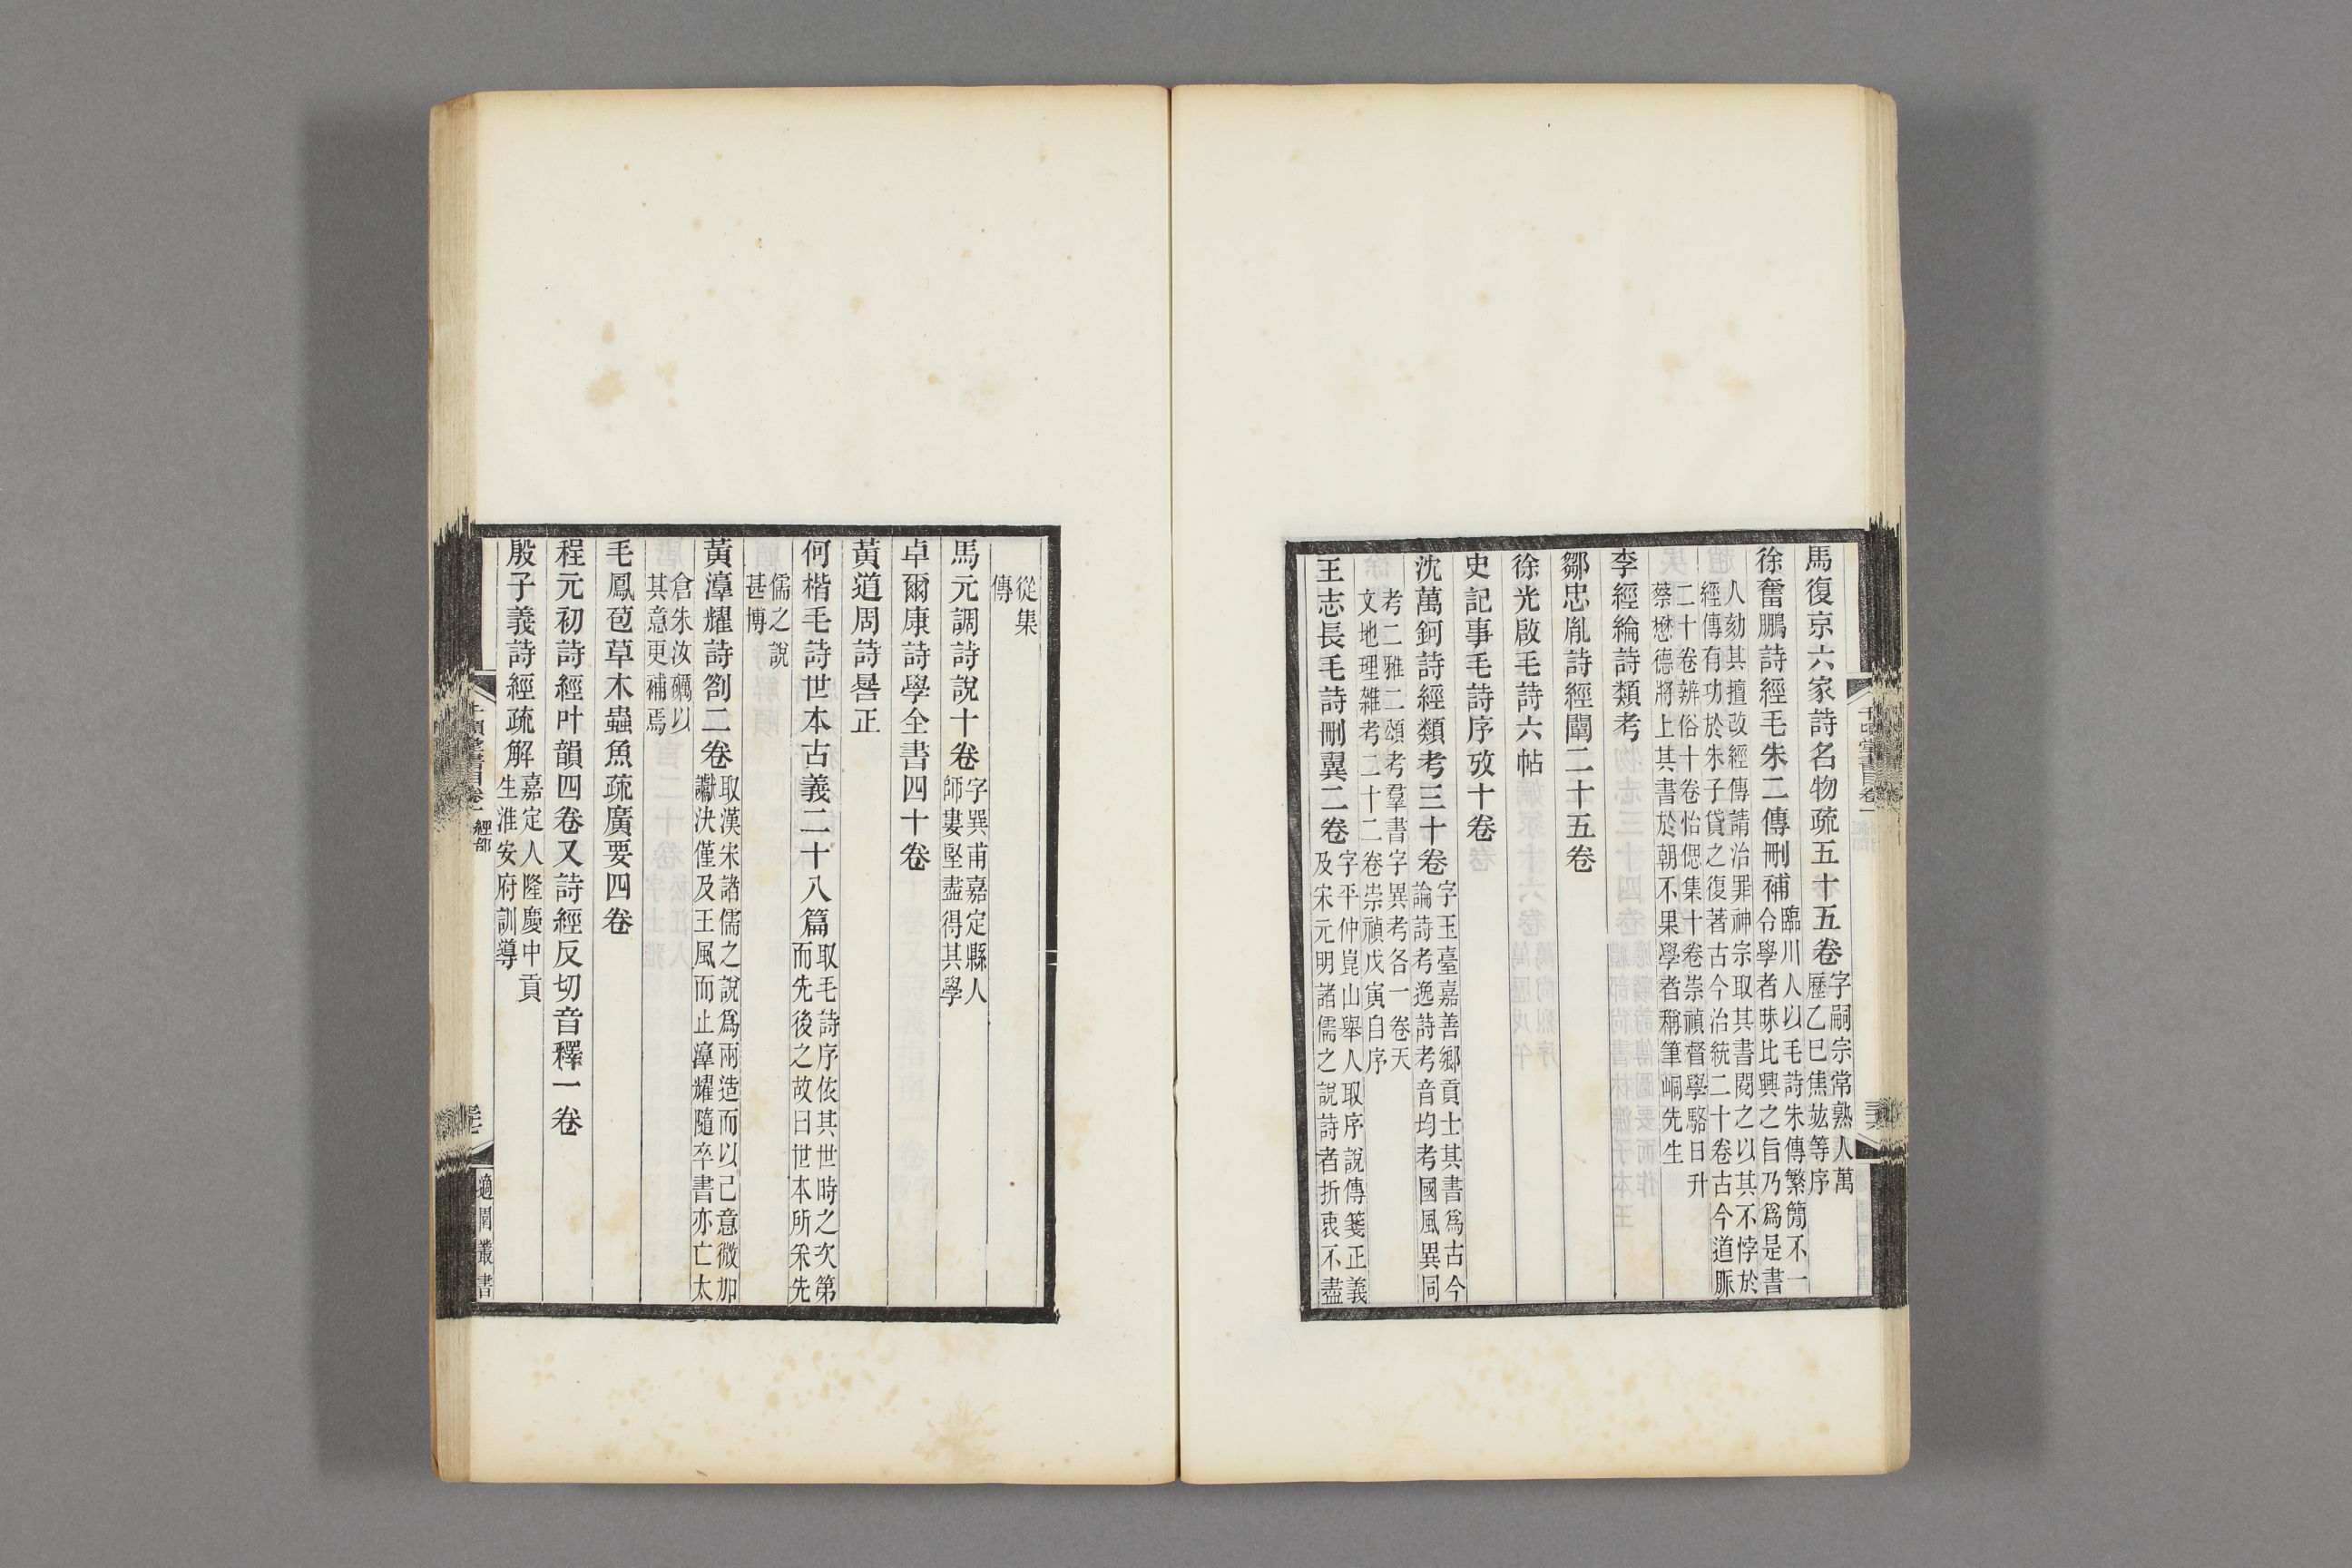 馬復京六家詩名物疏五十五卷字嗣宗常熟人萬
歷乙巳焦竑等序
徐奮鵬詩經毛朱二傳刪補臨川人以毛詩朱傳繁簡不一
令學者昧比興之旨乃爲是書
人劾其擅改經傳請治罪神宗取其書閱之以其不悖於
經傳有功於朱子貸之復著古今治統二十卷古今道脈
二十卷辨俗十卷怡偲集十卷崇禎督學駱日升
蔡懋德將上其書於朝不果學者稱筆峒先生
李經綸詩類考
鄒忠胤詩經闡二十五卷
徐光啟毛詩六帖
史記事毛詩序攷十卷
沈萬鈳詩經類考三十卷字玉臺嘉善鄉貢士其書爲古今
論詩考逸詩考音均考國風異同
考二雅二頌考羣書字異考各一卷天
文地理雜考二十二卷崇禎戊寅自序
王志長毛詩刪翼二卷字平仲崑山舉人取序說傳箋正義
及宋元明諸儒之說詩者折衷不盡
從集
傳
馬元調詩說十卷字巽甫嘉定縣人
師婁堅盡得其學
卓爾康詩學全書四十卷
黃道周詩晷正
何楷毛詩世本古義二十八篇取毛詩序依其世時之次第
而先後之故曰世本所釆先
儒之說
甚博
黃漳耀詩劄二卷取漢宋諸儒之說爲兩造而以己意微加
讞決僅及王風而止漳耀隨卒書亦亡太
倉朱汝礪以
其意更補焉
毛鳳苞草木蟲魚疏廣要四卷
程元初詩經叶韻四卷又詩經反切音釋一卷
殷子義詩經疏解嘉定人隆慶中貢
生淮安府訓導
千頃堂書目卷一
經部
適園叢書